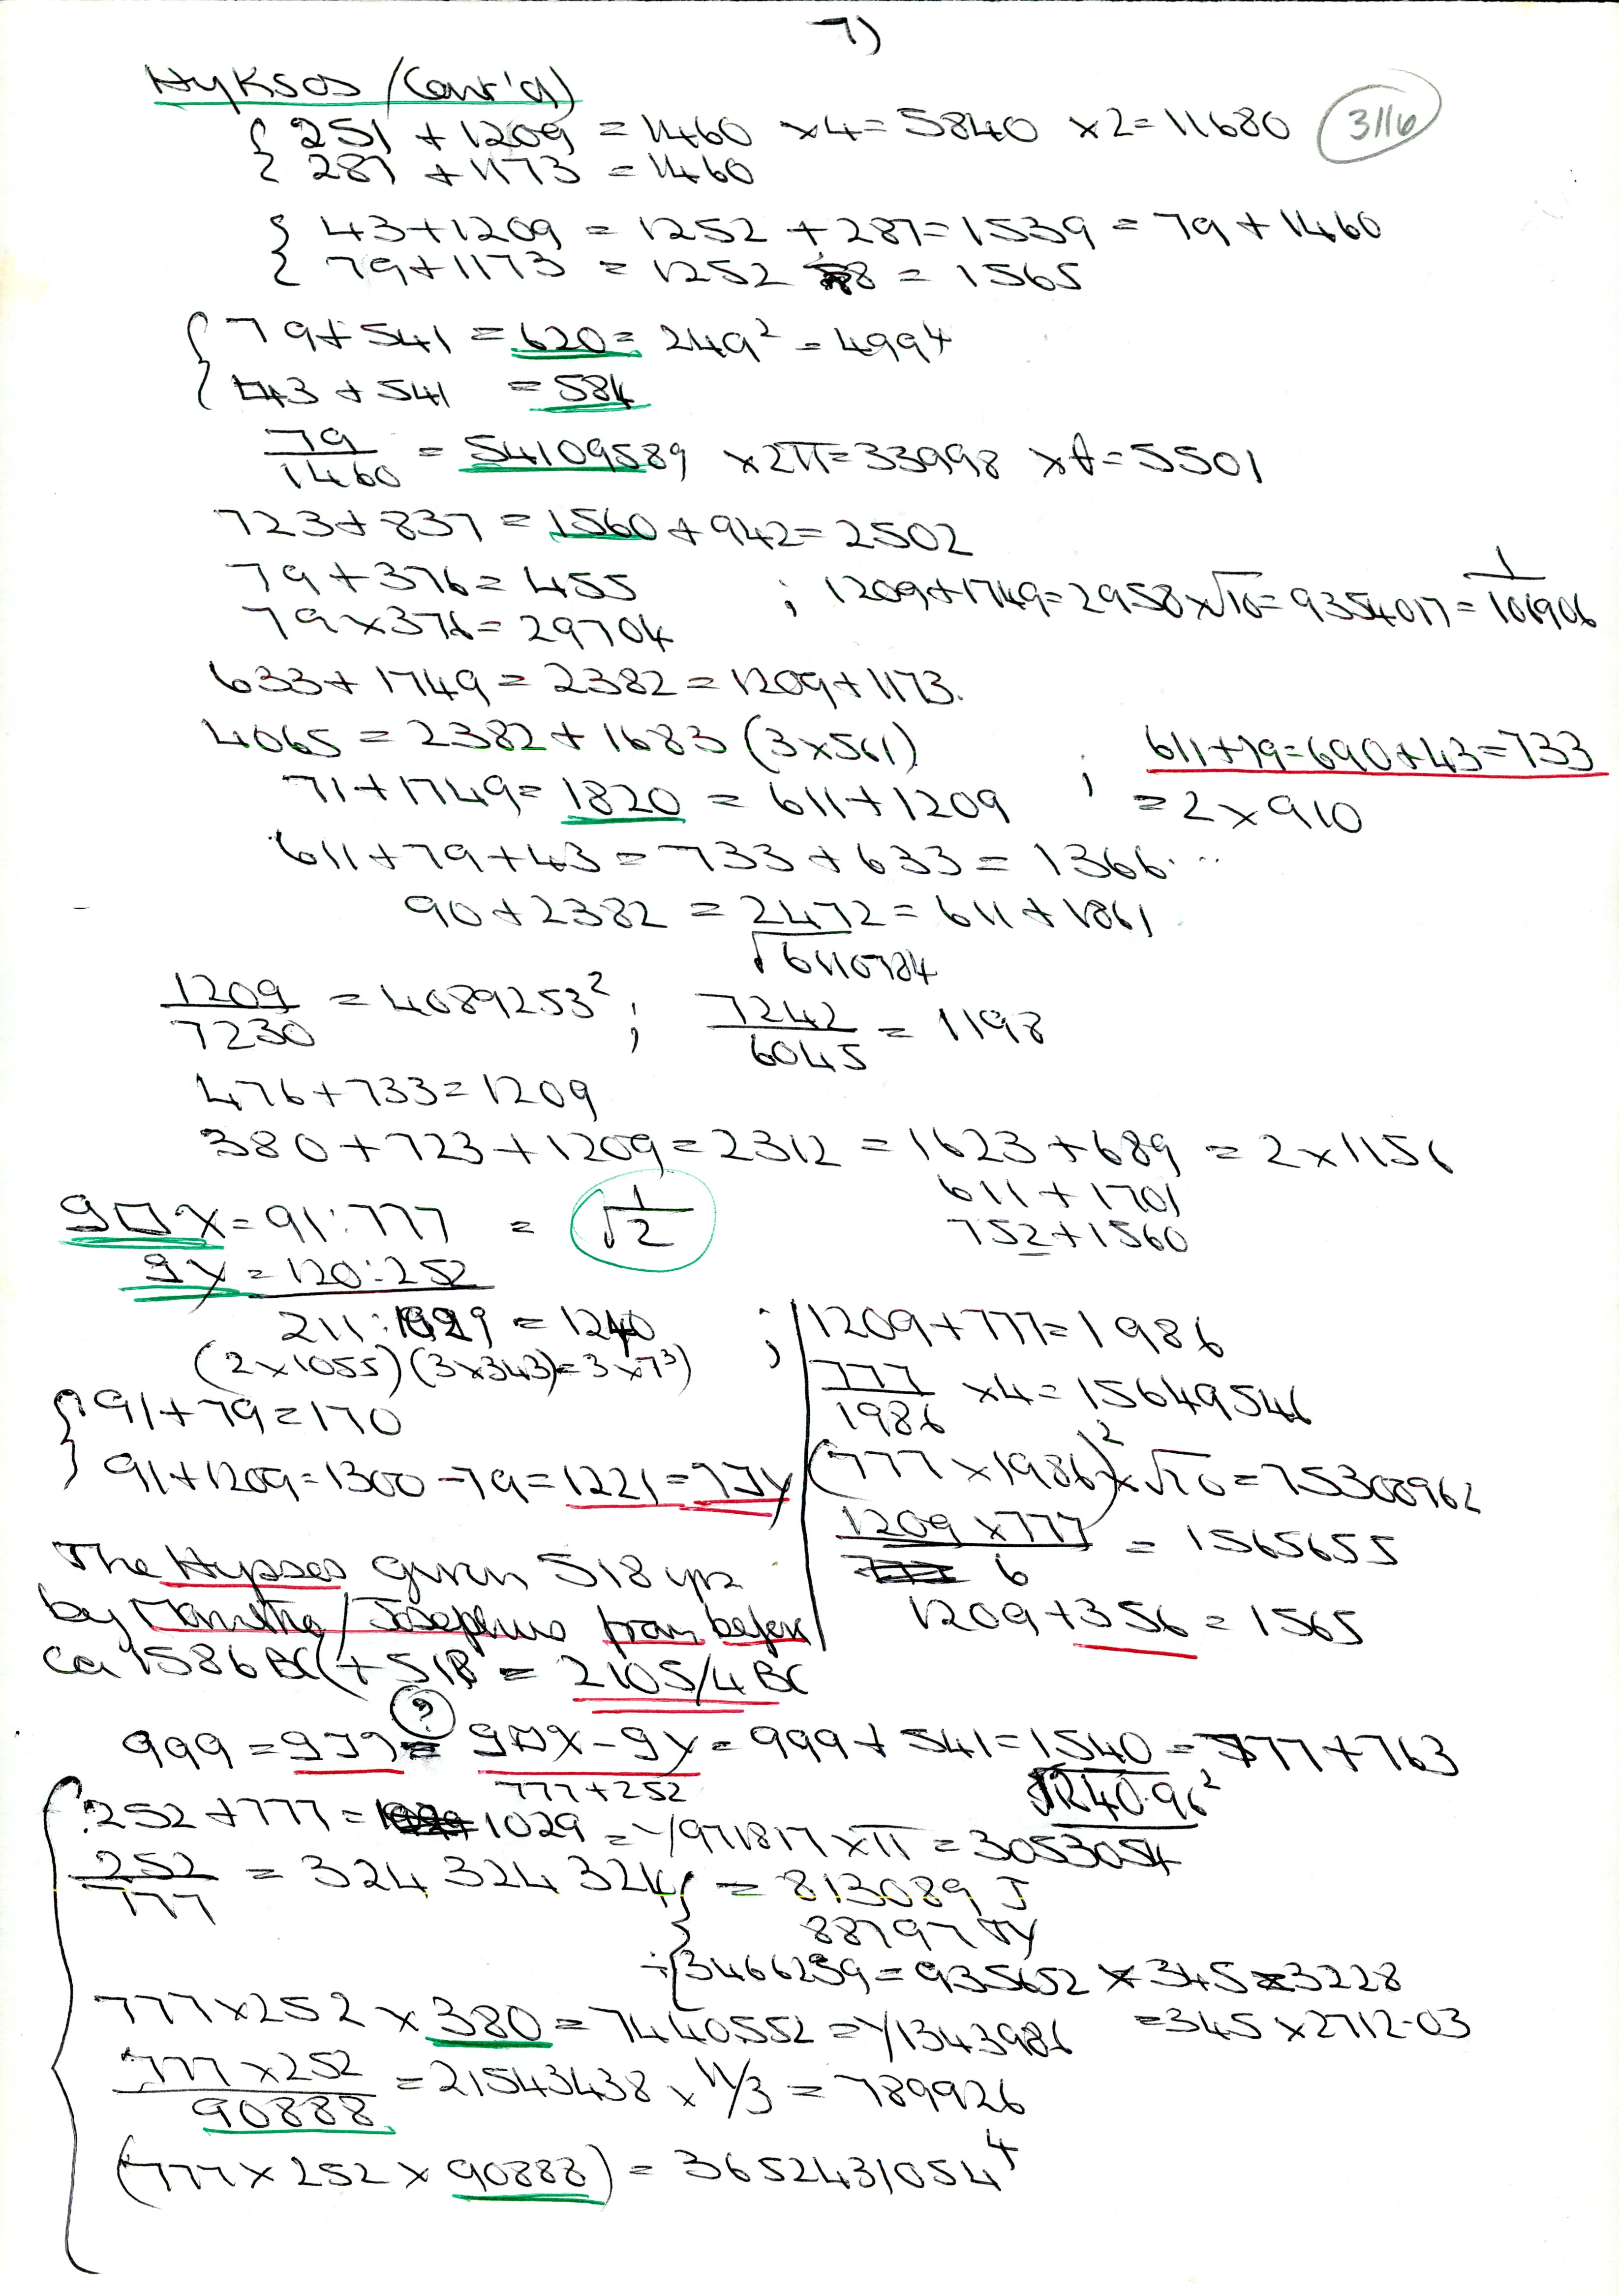 7)
Hyksos (Cont'd)
{ 251 + 1209 = 1460 ×4 = 5840 ×2 = 11680 3116
{ 287 + 1173 = 1460
{ 43+1209 = 1252 + 287 = 1539 = 79 + 1460
{ 79+1173 = 1252 = 1565
{ 79+541 = 620 = 249² = 499⁴
{ 43 + 541 = 584
79/1460 = 54109589 ×2π = 33998 × = 5501
723+837 = 1560 + 942 = 2502
79 + 376 = 455 ; 1209+1749 = 2958 ×√10 = 9354017 = 1/106906
79 × 376 = 29704
633 + 1749 = 2382 = 1209 + 1173.
4065 = 2382 + 1683 (3×561) ; 611+79=690+43=733
71+1749 = 1820 = 611 + 1209 = 2 × 910
611+79+43 = 733 + 633 = 1366...
90 + 2382 = 2472 = 611 + 1861
√6110784
1209/7230 = 4089253² ; 7242/6045 = 1198
476+733 = 1209
380 + 723 + 1209 = 2312 = 1623 + 689 = 2 × 1156
611 + 1701
752 + 1560
= 91:777 = √1/2
= 120:252
211: 1029 = 1240
(2×1055) (3×343) = 3×7³)
{ 91 + 79 = 170
{ 91 + 1209 = 1300 - 79 = 1221 =
; 1209 + 777 = 1986
777/1986 ×4 = 15649546
(777 × 1986)² × √10 = 75300962
1209 × 777/6 = 1565655
1209 + 356 = 1565
The Hypsos given 518 yrs
by Manetho/Josephus from before
ca 1586 BC (+ 518 = 2105/4 BC
999 = (?) = 999 + 541 = 1540 = 777 + 763
777 + 252 √1240.96²
252 + 777 = 1029 = √971817 × π = 3053054
252/777 = 324 324 324 } = 813089 J
88797
÷ { 3466239 = 935652 × 345 3228
777 × 252 × 380 = 7440552 = √1343986 = 345 × 2712.03
777 × 252/90888 = 21543438 × 11/3 = 789926
(777 × 252 × 90888) = 3652431054⁴